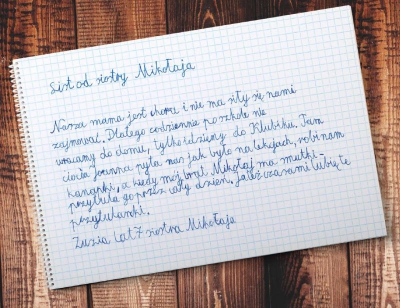 List od siostry Mikołaja
Nasza mama jest chora i nie ma siły się nami
zajmować. Dlatego codziennie po szkole nie
wracamy do domu, tylko idziemy do Klubiku. Tam
ciocia Joanna pyta nas jak było na lekcjach, robi nam
kanapki, a kiedy mój brat Mikołaj ma smutki -
przytula go przez cały dzień. Ja też czasami lubię te
przytulanki.
Zuzia lat 7 siostra Mikołaja